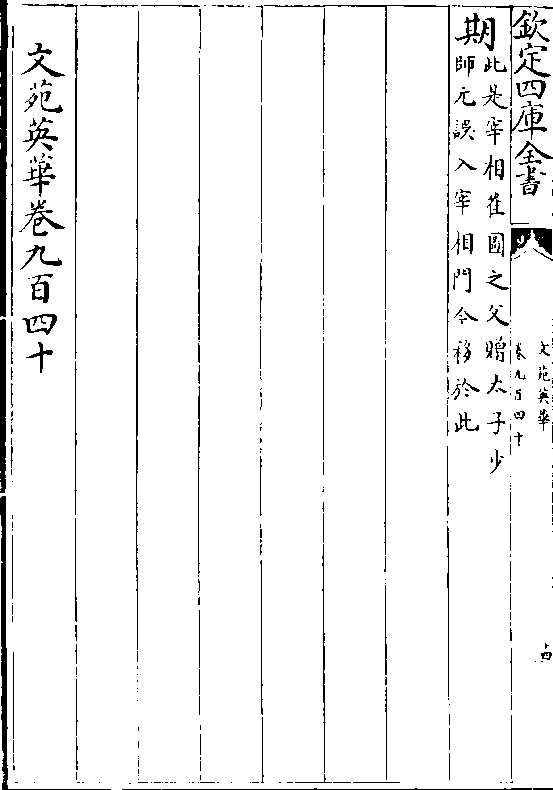 欽定四庫全書
文苑英華
卷九百四十
十四
期
此是宰相崔圓之父贈太子少
師元誤入宰相門今移於此
文苑英華卷九百四十